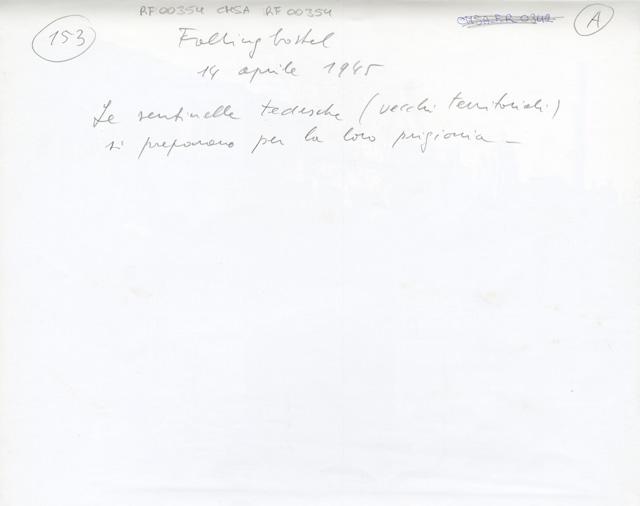 RF 00354 CHSA RF 00354
CHSA FR 0342
A
153
Fallingbostel
14 aprile 1945
Le sentinelle tedesche (vecchi territoriali)
si preparano per la loro prigionia —